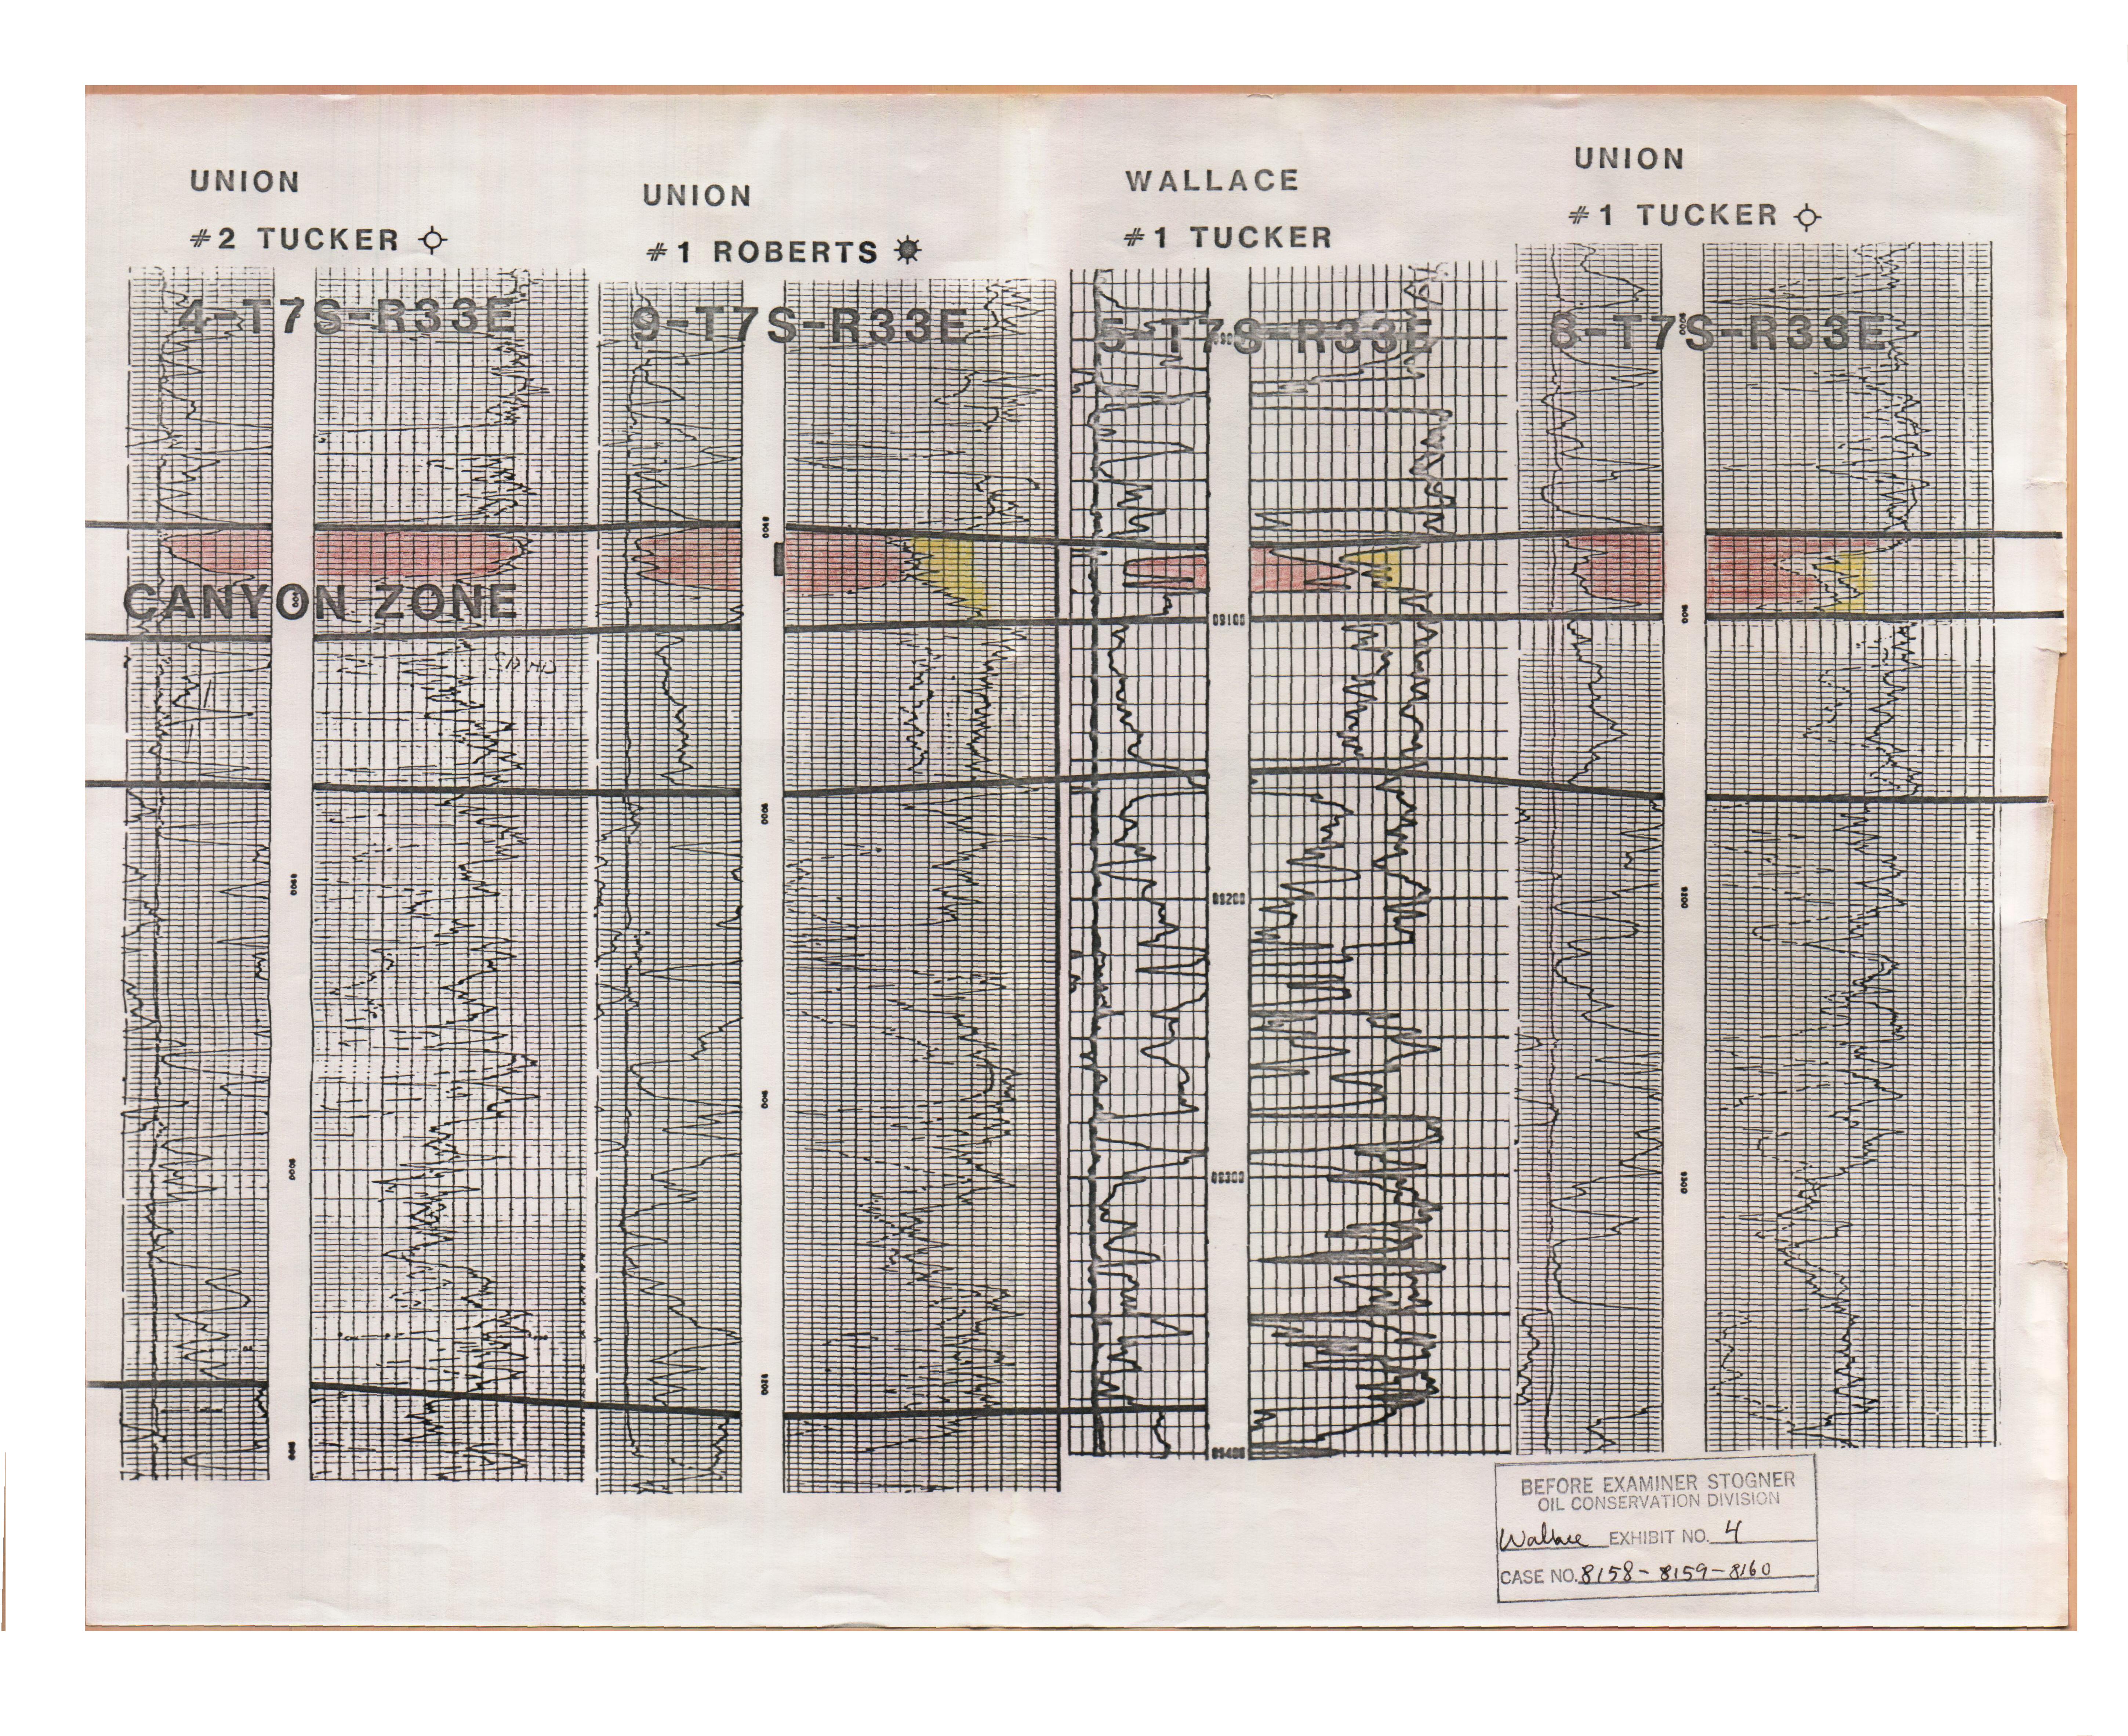 UNION
#2 TUCKER
4-T7S-R33E
UNION
#1 ROBERTS
9-T7S-R33E
WALLACE
#1 TUCKER
5-T7S-R33E
UNION
#1 TUCKER
8-T7S-R33E
CANYON ZONE
8900
9000
9100
8900
9000
9100
9200
09100
09200
09300
09400
9000
9100
9200
9300
BEFORE EXAMINER STOGNER
OIL CONSERVATION DIVISION
Wallace EXHIBIT NO. 4
CASE NO. 8158-8159-8160